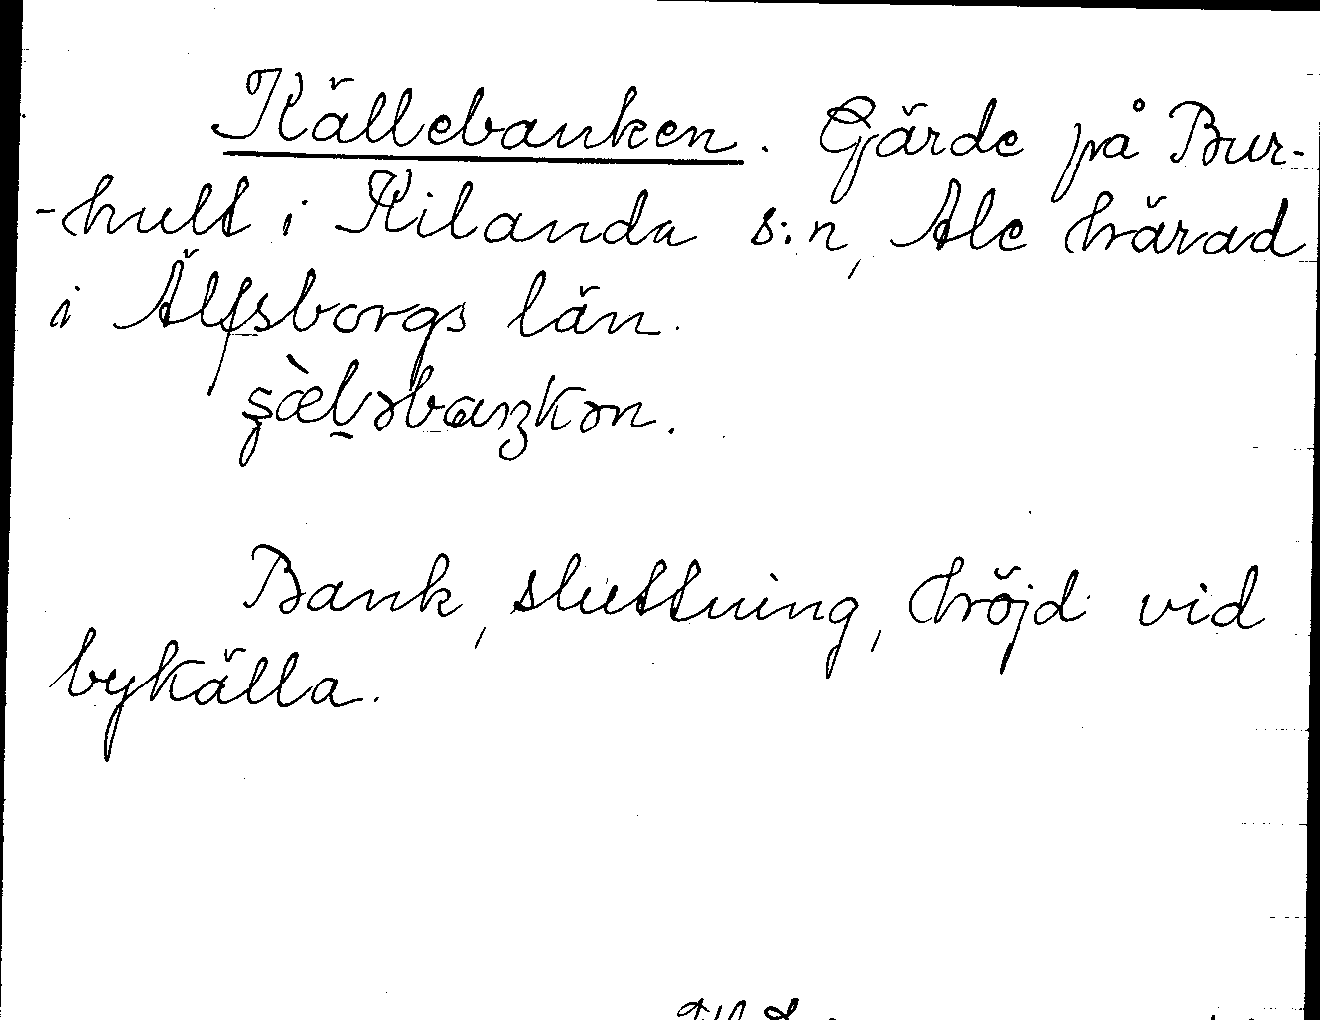 Källebanken. Gärde på Bur-
-hult i Kilanda s:n, Ale härad
i Älfsborgs län.
Bank, sluttning, höjd vid
bykälla.